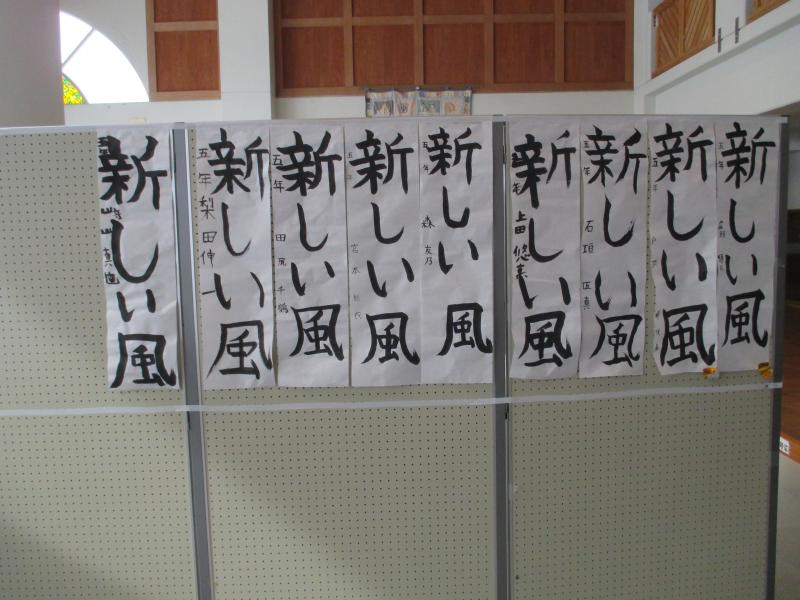 新しい風
五年
新しい風
五年
新しい風
五年 石垣 匠真
新しい風
五年 上田 悠寿
新しい風
五年 森 友乃
新しい風
宮本
新しい風
五年 田尻 千鶴
新しい風
五年 梨田伸一
新しい風
真